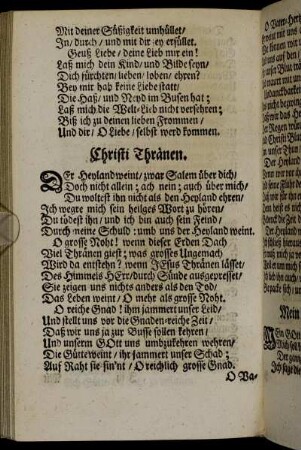 Mit deiner Süßigkeit umhüllet/
In/ durch/ und mit dir sey erfüllet.
Geuß Liebe/ deine Lieb mir ein!
Laß mich dein Kind/ und Bilde seyn/
Dich fürchten/ lieben/ loben/ ehren?
Bey mir hab keine Liebe statt/
Die Haß/ und Neyd im Busen hat;
Laß mich die Welt-Lieb nicht versehren;
Biß ich zu deinen lieben Frommen/
Und dir/ O Liebe/ selbst werd kommen.
Christi Thränen.
DEr Heyland weint/ zwar Salem über dich/
Doch nicht allein; ach nein; auch über mich/
Du woltest ihn nicht als den Heyland ehren/
Ich wegre mich sein heilges Wort zu hören/
Du tödest ihn/ und ich bin auch sein Feind/
Durch meine Schuld: umb uns der Heyland weint.
O grosse Noht! wenn dieser Erden Dach
Viel Thränen giest; was grosses Ungemach
Wird da entstehn? wenn JEsus Thränen lässet/
Des Himmels HErr/ durch Sünde ausgepresset/
Sie zeigen uns nichts anders als den Tod/
Das Leben weint/ O mehr als grosse Noht.
O reiche Gnad! ihm jammert unser Leid/
Und stellt uns vor die Gnaden-reiche Zeit/
Daß wir uns ja zur Busse sollen kehren/
Und unserm GOtt uns umbzukehren wehren/
Die Güte weint/ ihr jammert unser Schad;
Auf Raht sie sin'nt/ O reichlich grosse Gnad.
O Va-